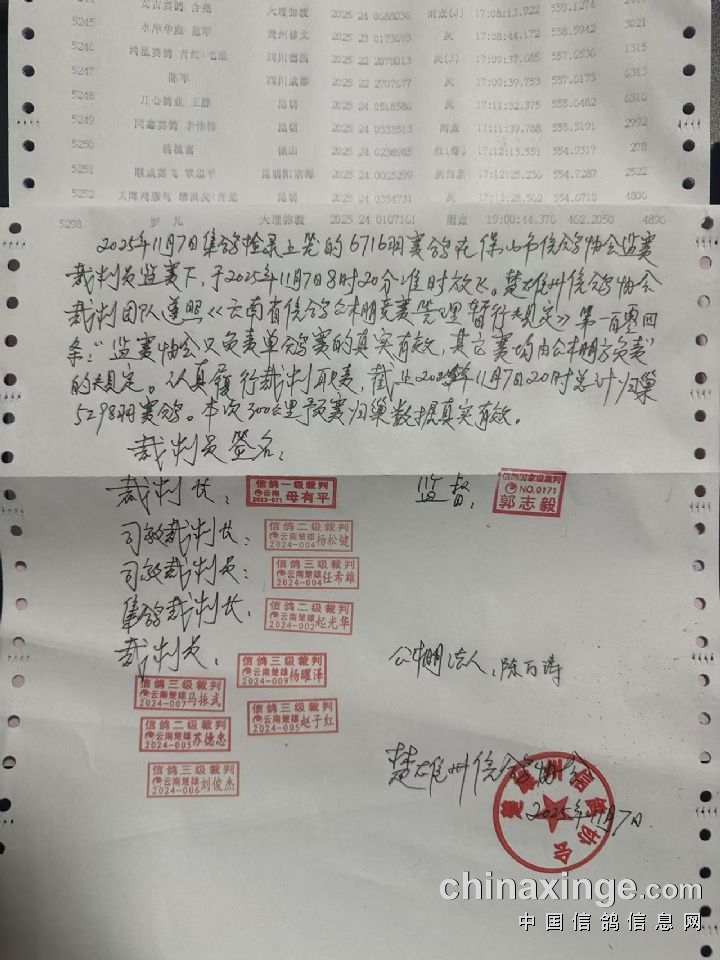 大理弥散 2025 24 0688036 雨点(J) 17:08:13.922 559.1274
5245 水岸华庭 范军 贵州修文 2025 23 0173693 灰 17:08:44.172 558.5942 3021
5246 四川德昌 2025 22 2078013 灰(J) 17:09:37.685 557.6536 1315
5247 陈军 四川成都 2025 22 2707677 灰 17:09:39.753 557.6173 6313
5248 开心鸽业 王静 昆明 2025 24 0518586 灰 17:11:32.375 555.6482 6316
5249 昆明 2025 24 0333513 雨点 17:11:39.788 555.5191 2992
5250 杨植富 保山 2025 24 0238985 17:12:13.551 554.9317 278
5251 2025 24 0065299 灰白条 17:12:25.236 554.7287 2522
5252 昆明 2025 24 0354731 灰 17:12:28.562 554.6710 4806
5298 罗凡 大理弥散 2025 24 0107161 雨点 19:00:44.376 462.2050 4896
2025年11月7日集鸽检录上笼的6716羽赛鸽在保山市信鸽协会监赛
裁判员监赛下，于2025年11月7日8时20分准时放飞。楚雄州信鸽协会
裁判团队遵照《云南省信鸽公棚竞赛管理暂行规定》第一百零四
条："监赛协会只负责单鸽赛的真实有效，其它赛均由公棚方负责"
的规定。认真履行裁判职责，截止2025年11月7日20时总计归巢
5298羽赛鸽。本次300公里预赛归巢数据真实有效。
裁判员签名：
裁判长： 信鸽一级裁判 云南 2023-071 母有平 监督： 信鸽国家级裁判 NO.0171 郭志毅
司放裁判长： 信鸽二级裁判 云南楚雄 2024-004 杨松健
司放裁判员： 信鸽三级裁判 云南楚雄 2024-004 任希雄
集鸽裁判长： 信鸽二级裁判 云南楚雄 2024-002 起光华
裁判员： 信鸽三级裁判 云南楚雄 2024-009 杨曜泽 公棚法人：陈万涛
信鸽三级裁判 云南楚雄 2024-007 马振武
信鸽三级裁判 云南楚雄 2024-005 赵子红
信鸽二级裁判 云南楚雄 2024-005 苏德忠
信鸽三级裁判 云南楚雄 2024-006 刘俊杰
楚雄州信鸽协会
2025年11月7日
chinaxinge.com
中国信鸽信息网